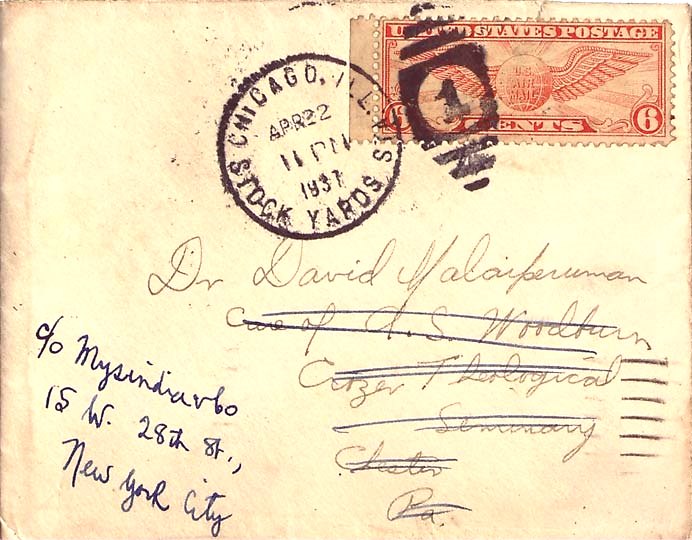 UNITED STATES POSTAGE
U.S.
AIR
MAIL
6 CENTS 6
1
CHICAGO, ILL.
APR 22
11 PM
1937
STOCK YARDS STA
Dr David Malaiperuman
Care of A. S. Woodburn
Crozer Theological
Seminary
Chester
Pa.
c/o Mysindiavbo
15 W. 28th St.,
New York City